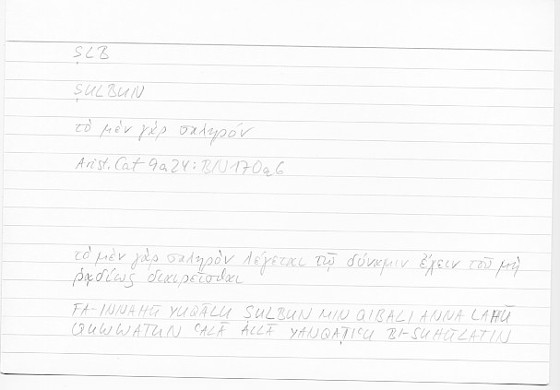 ṢLB
ṢULBUN
τὸ μὲν γὰρ σκληρόν
Arist. Cat 9a24: BN170a6
τὸ μὲν γὰρ σκληρὸν λέγεται τῷ δύναμιν ἔχειν τοῦ μὴ
ῥᾳδίως διαιρεῖσθαι
FA-INNAHŪ YUQĀLU ṢULBUN MIN QIBALI ANNA LAHŪ
QUWWATUN ʿALĀ ALLĀ YANQAṬIʿU BI-SUHŪLATIN